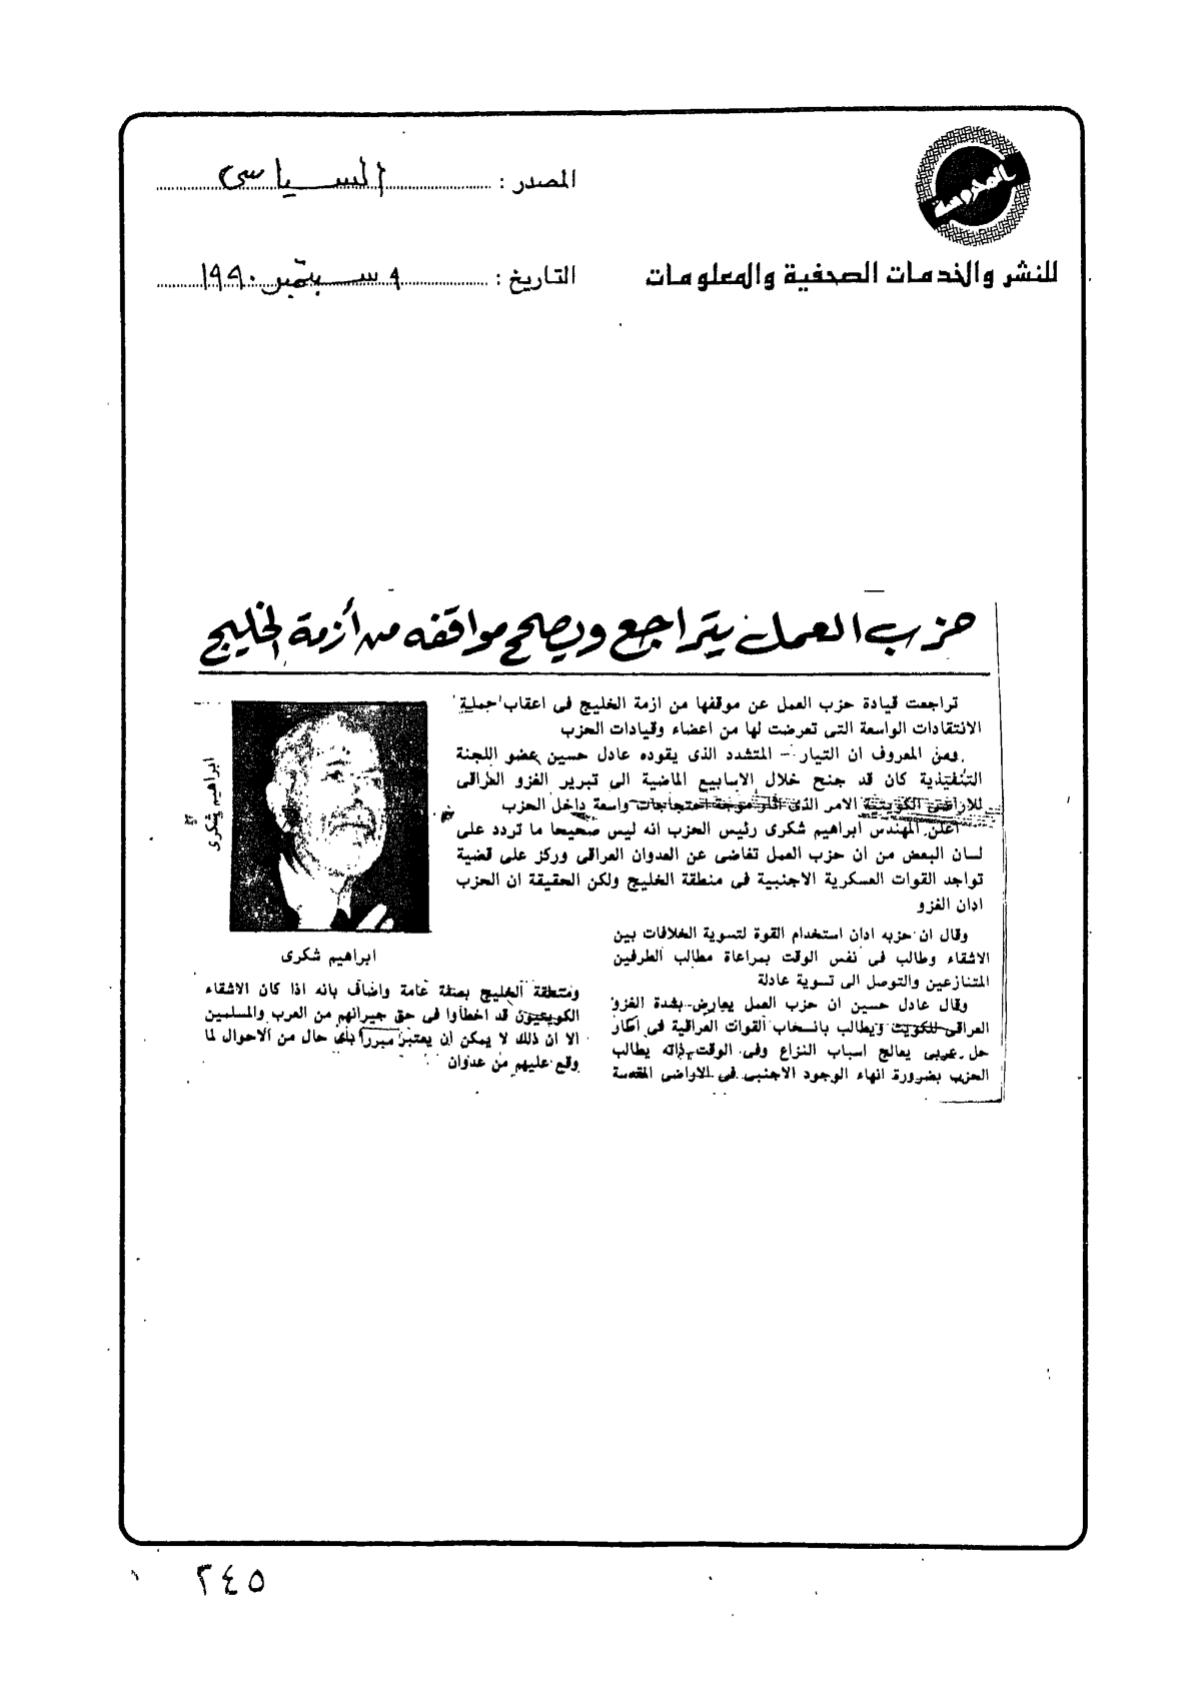 المحروسة
للنشر والخدمات الصحفية والمعلومات
المصدر : السياسى
التاريخ : ٩ سبتمبر ١٩٩٠
حزب العمل يتراجع ويصحح مواقفه من أزمة الخليج
تراجعت قيادة حزب العمل عن موقفها من ازمة الخليج فى اعقاب حملة
الانتقادات الواسعة التى تعرضت لها من اعضاء وقيادات الحزب
ومن المعروف ان التيار - المتشدد الذى يقوده عادل حسين عضو اللجنة
التنفيذية كان قد جنح خلال الاسابيع الماضية الى تبرير الغزو العراقى
للاراضى الكويتية الامر الذى اثار موجة احتجاجات واسعة داخل الحزب
اعلن المهندس ابراهيم شكرى رئيس الحزب انه ليس صحيحا ما تردد على
لسان البعض من ان حزب العمل تغاضى عن العدوان العراقى وركز على قضية
تواجد القوات العسكرية الاجنبية فى منطقة الخليج ولكن الحقيقة ان الحزب
ادان الغزو
وقال ان حزبه ادان استخدام القوة لتسوية الخلافات بين
الاشقاء وطالب فى نفس الوقت بمراعاة مطالب الطرفين
المتنازعين والتوصل الى تسوية عادلة
وقال عادل حسين ان حزب العمل يعارض بشدة الغزو
العراقى للكويت ويطالب بانسحاب القوات العراقية فى اطار
حل عربى يعالج اسباب النزاع وفى الوقت ذاته يطالب
الحزب بضرورة انهاء الوجود الاجنبى فى الاراضى المقدسة
ابراهيم شكرى
ابراهيم شكرى
ومنطقة الخليج بصفة عامة واضاف بانه اذا كان الاشقاء
الكويتيون قد اخطأوا فى حق جيرانهم من العرب والمسلمين
الا ان ذلك لا يمكن ان يعتبر مبررا بأى حال من الاحوال لما
وقع عليهم من عدوان
٢٤٥